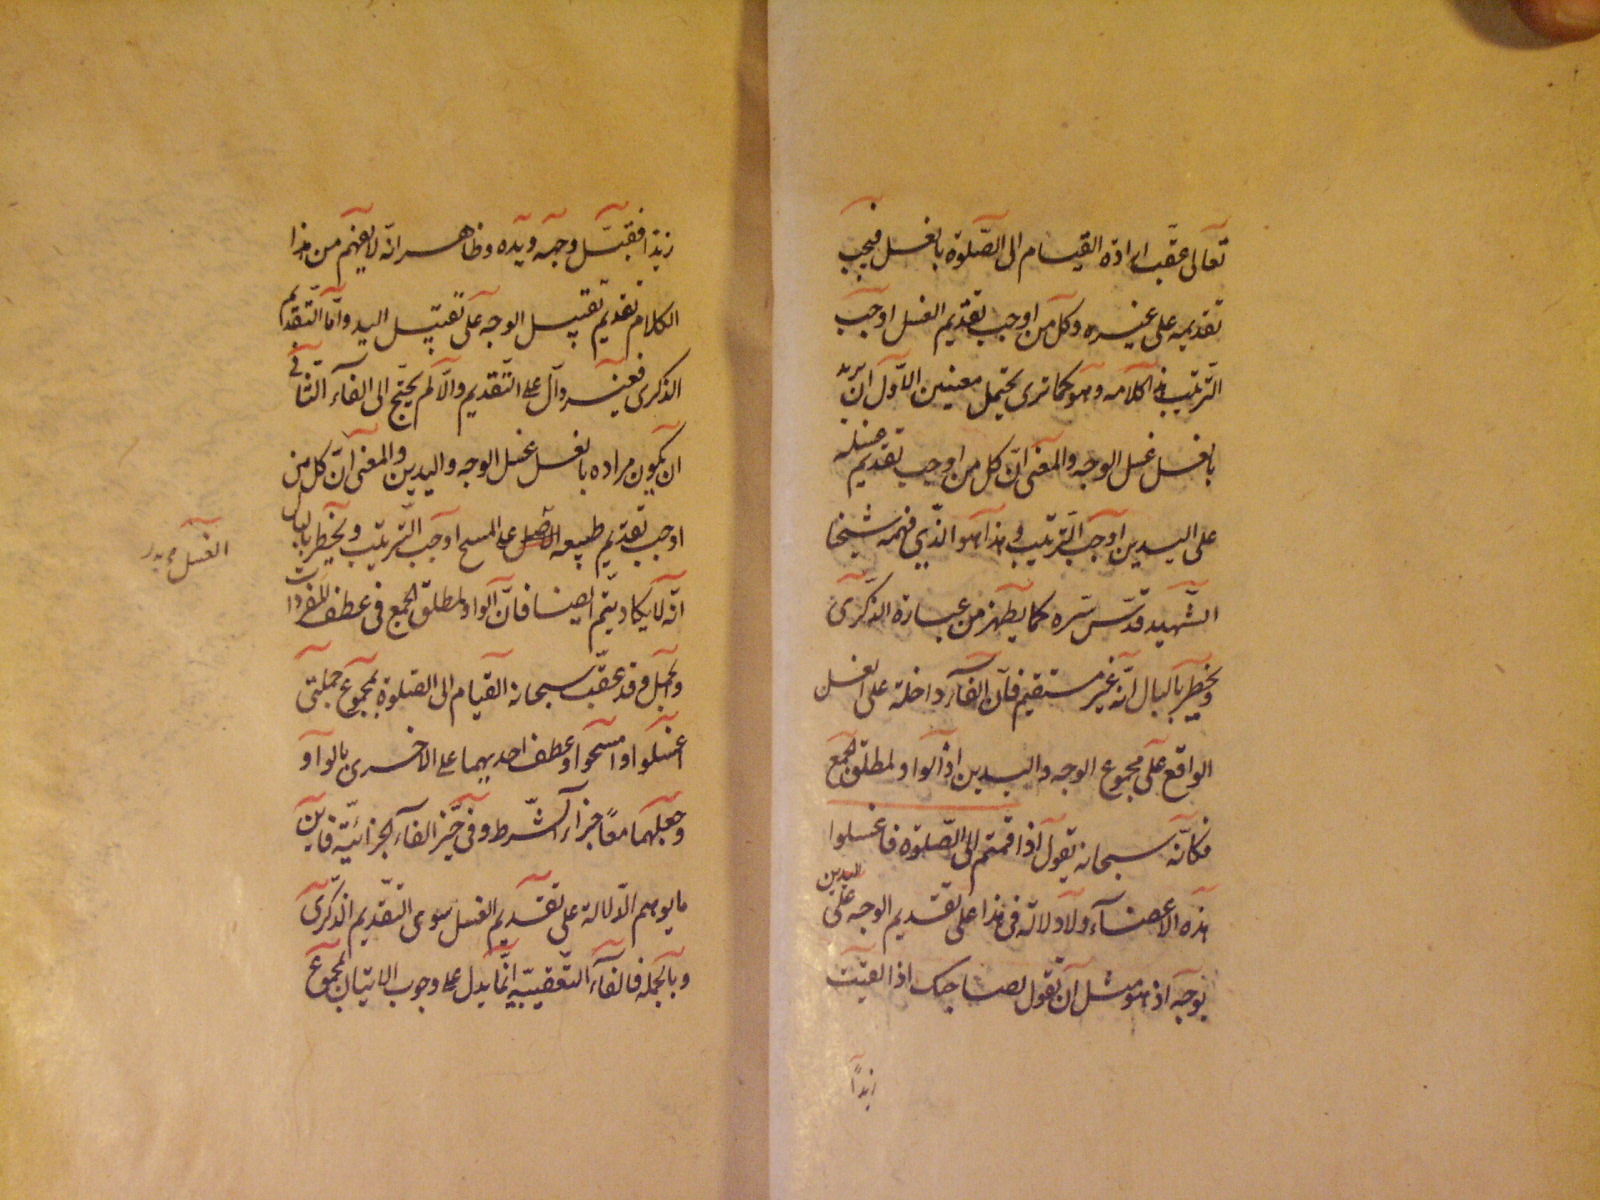 تعالى عقب ارادة القيام الى الصلوة بالغسل فيجب
تقديمه على غيره وكل من اوجب تقديم الغسل اوجب
الترتيب هذا كلامه وهو كما ترى يحتمل معنيين الاول ان يريد
بالغسل غسل الوجه والمعنى ان كل من اوجب تقديم غسله
على اليدين اوجب الترتيب وهذا هو الذي فهمه شيخنا
الشهيد قدس سره كما يظهر من عبارة الذكرى
ويخطر بالبال انه غير مستقيم فان الفاء داخلة على الغسل
الواقع على مجموع الوجه واليدين اذ الواو لمطلق الجمع
فكانه سبحانه يقول اذا قمتم الى الصلوة فاغسلوا
هذه الاعضاء ولا دلالة في هذا على تقديم الوجه على اليدين
بوجه اذ هو مثل ان تقول لصاحبك اذا لقيت
زيداً
زيدا فقبل وجهه ويده وظاهر انه لا يفهم من هذا
الكلام تقديم تقبيل الوجه على تقبيل اليد واما التقديم
الذكرى فغير دال على التقديم والا لم يحتج الى الفاء الثانى
ان يكون مراده بالغسل غسل الوجه واليدين والمعنى ان كل من
اوجب تقديم طبيعه على المسح اوجب الترتيب ويخطر بالبال
الغسل
انه لا يكاد يتم ايضا فان الواو لمطلق الجمع فى عطف المفردات
والجمل وقد عقب سبحانه القيام الى الصلوة بمجموع جملتى
اغسلوا وامسحوا وعطف احديهما على الاخرى بالواو
وجعلهما معًا جزاء الشرط وفى حيز الفاء الجزائية فاين
ما يوهم الدلالة على تقديم الغسل سوى التقديم الذكرى
وبالجملة فالفاء التعقيبية انما يدل على وجوب الاتيان بمجموع